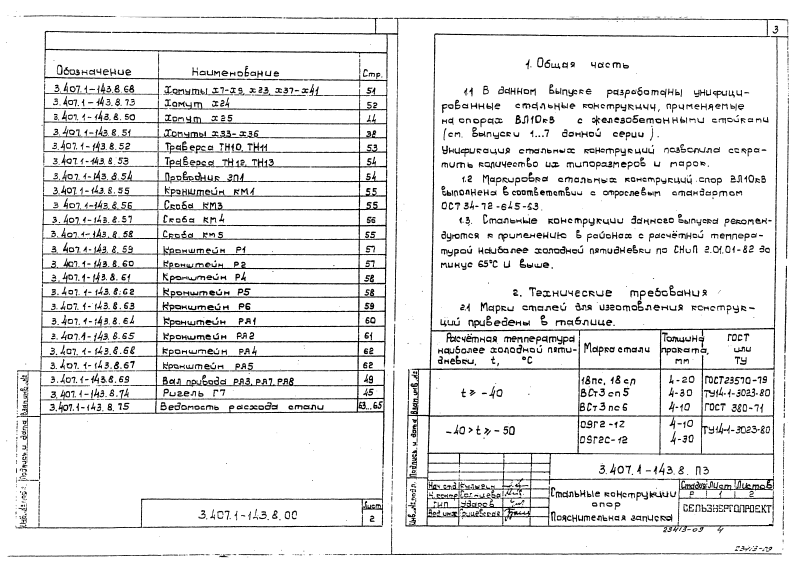 Обозначение Наименование Стр.
3.407.1-143.8.68 Хомуты х7-х9, х23, х37-х41 51
3.407.1-143.8.73 Хомут х24 52
3.407.1-143.8.50 Хомут х25 44
3.407.1-143.8.51 Хомуты х33-х36 38
3.407.1-143.8.52 Траверса ТН10, ТН11 53
3.407.1-143.8.53 Траверса ТН12, ТН13 54
3.407.1-143.8.54 Проводник ЗП1 54
3.407.1-143.8.55 Кронштейн КМ1 55
3.407.1-143.8.56 Скоба КМ3 55
3.407.1-143.8.57 Скоба КМ4 56
3.407.1-143.8.58 Скоба КМ5 55
3.407.1-143.8.59 Кронштейн Р1 57
3.407.1-143.8.60 Кронштейн Р2 57
3.407.1-143.8.61 Кронштейн Р4 58
3.407.1-143.8.62 Кронштейн Р5 58
3.407.1-143.8.63 Кронштейн Р6 59
3.407.1-143.8.64 Кронштейн РА1 60
3.407.1-143.8.65 Кронштейн РА2 61
3.407.1-143.8.66 Кронштейн РА4 62
3.407.1-143.8.67 Кронштейн РА5 62
3.407.1-143.8.69 Вал привода РА3, РА7, РА8 49
3.407.1-143.8.74 Ригель Г7 45
3.407.1-143.8.75 Ведомость расхода стали 63...65
Инв.№подл. Подпись и дата Взам.инв.№
3.407.1-143.8.00
Лист
2
3
1. Общая часть
1.1 В данном выпуске разработаны унифици-
рованные стальные конструкции, применяемые
на опорах ВЛ10кВ с железобетонными стойками
(см. выпуски 1...7 данной серии).
Унификация стальных конструкций позволила сокра-
тить количество их типоразмеров и марок.
1.2 Маркировка стальных конструкций опор ВЛ10кВ
выполнена в соответствии с отраслевым стандартом
ОСТ 34-72-645-83.
1.3. Стальные конструкции данного выпуска рекомен-
дуются к применению в районах с расчётной темпера-
турой наиболее холодной пятидневки по СНиП 2.01.01-82 до
минус 65°С и выше.
2. Технические требования
2.1 Марки сталей для изготовления конструк-
ций приведены в таблице.
Расчётная температура наиболее холодной пяти-дневки, t, °С Марка стали Толщина проката, мм ГОСТ или ТУ
t ≥ -40 18пс, 18сп 4-20 ГОСТ23570-79
ВСт3сп5 4-30 ТУ14-1-3023-80
ВСт3пс6 4-10 ГОСТ 380-71
-40>t≥-50 09Г2-12 4-10 ТУ14-1-3023-80
09Г2С-12 4-30
Инв.№подл. Подпись и дата Взам.инв.№
3.407.1-143.8. ПЗ
Нач.отд.
Н.контр
ГИП Ударов
Вед.инж
Стальные конструкции
опор
Пояснительная записка
Стадия Лист Листов
Р 1 2
СЕЛЬЭНЕРГОПРОЕКТ
23413-09 4
23413-09